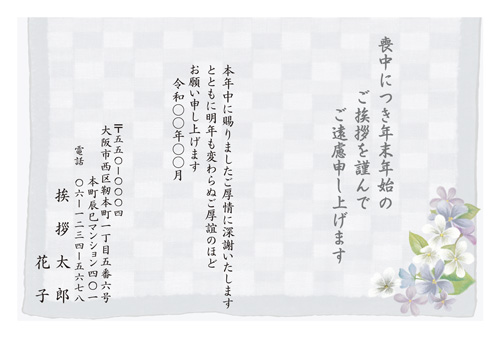 喪中につき年末年始の
ご挨拶を謹んで
ご遠慮申し上げます
本年中に賜りましたご厚情に深謝いたします
とともに明年も変わらぬご厚誼のほど
お願い申し上げます
令和〇〇年〇〇月
〒五五〇－〇〇〇四
大阪市西区靭本町一丁目五番六号
本町辰巳マンション四〇一
電話 〇六－一二三四－五六七八
挨拶太郎
花子